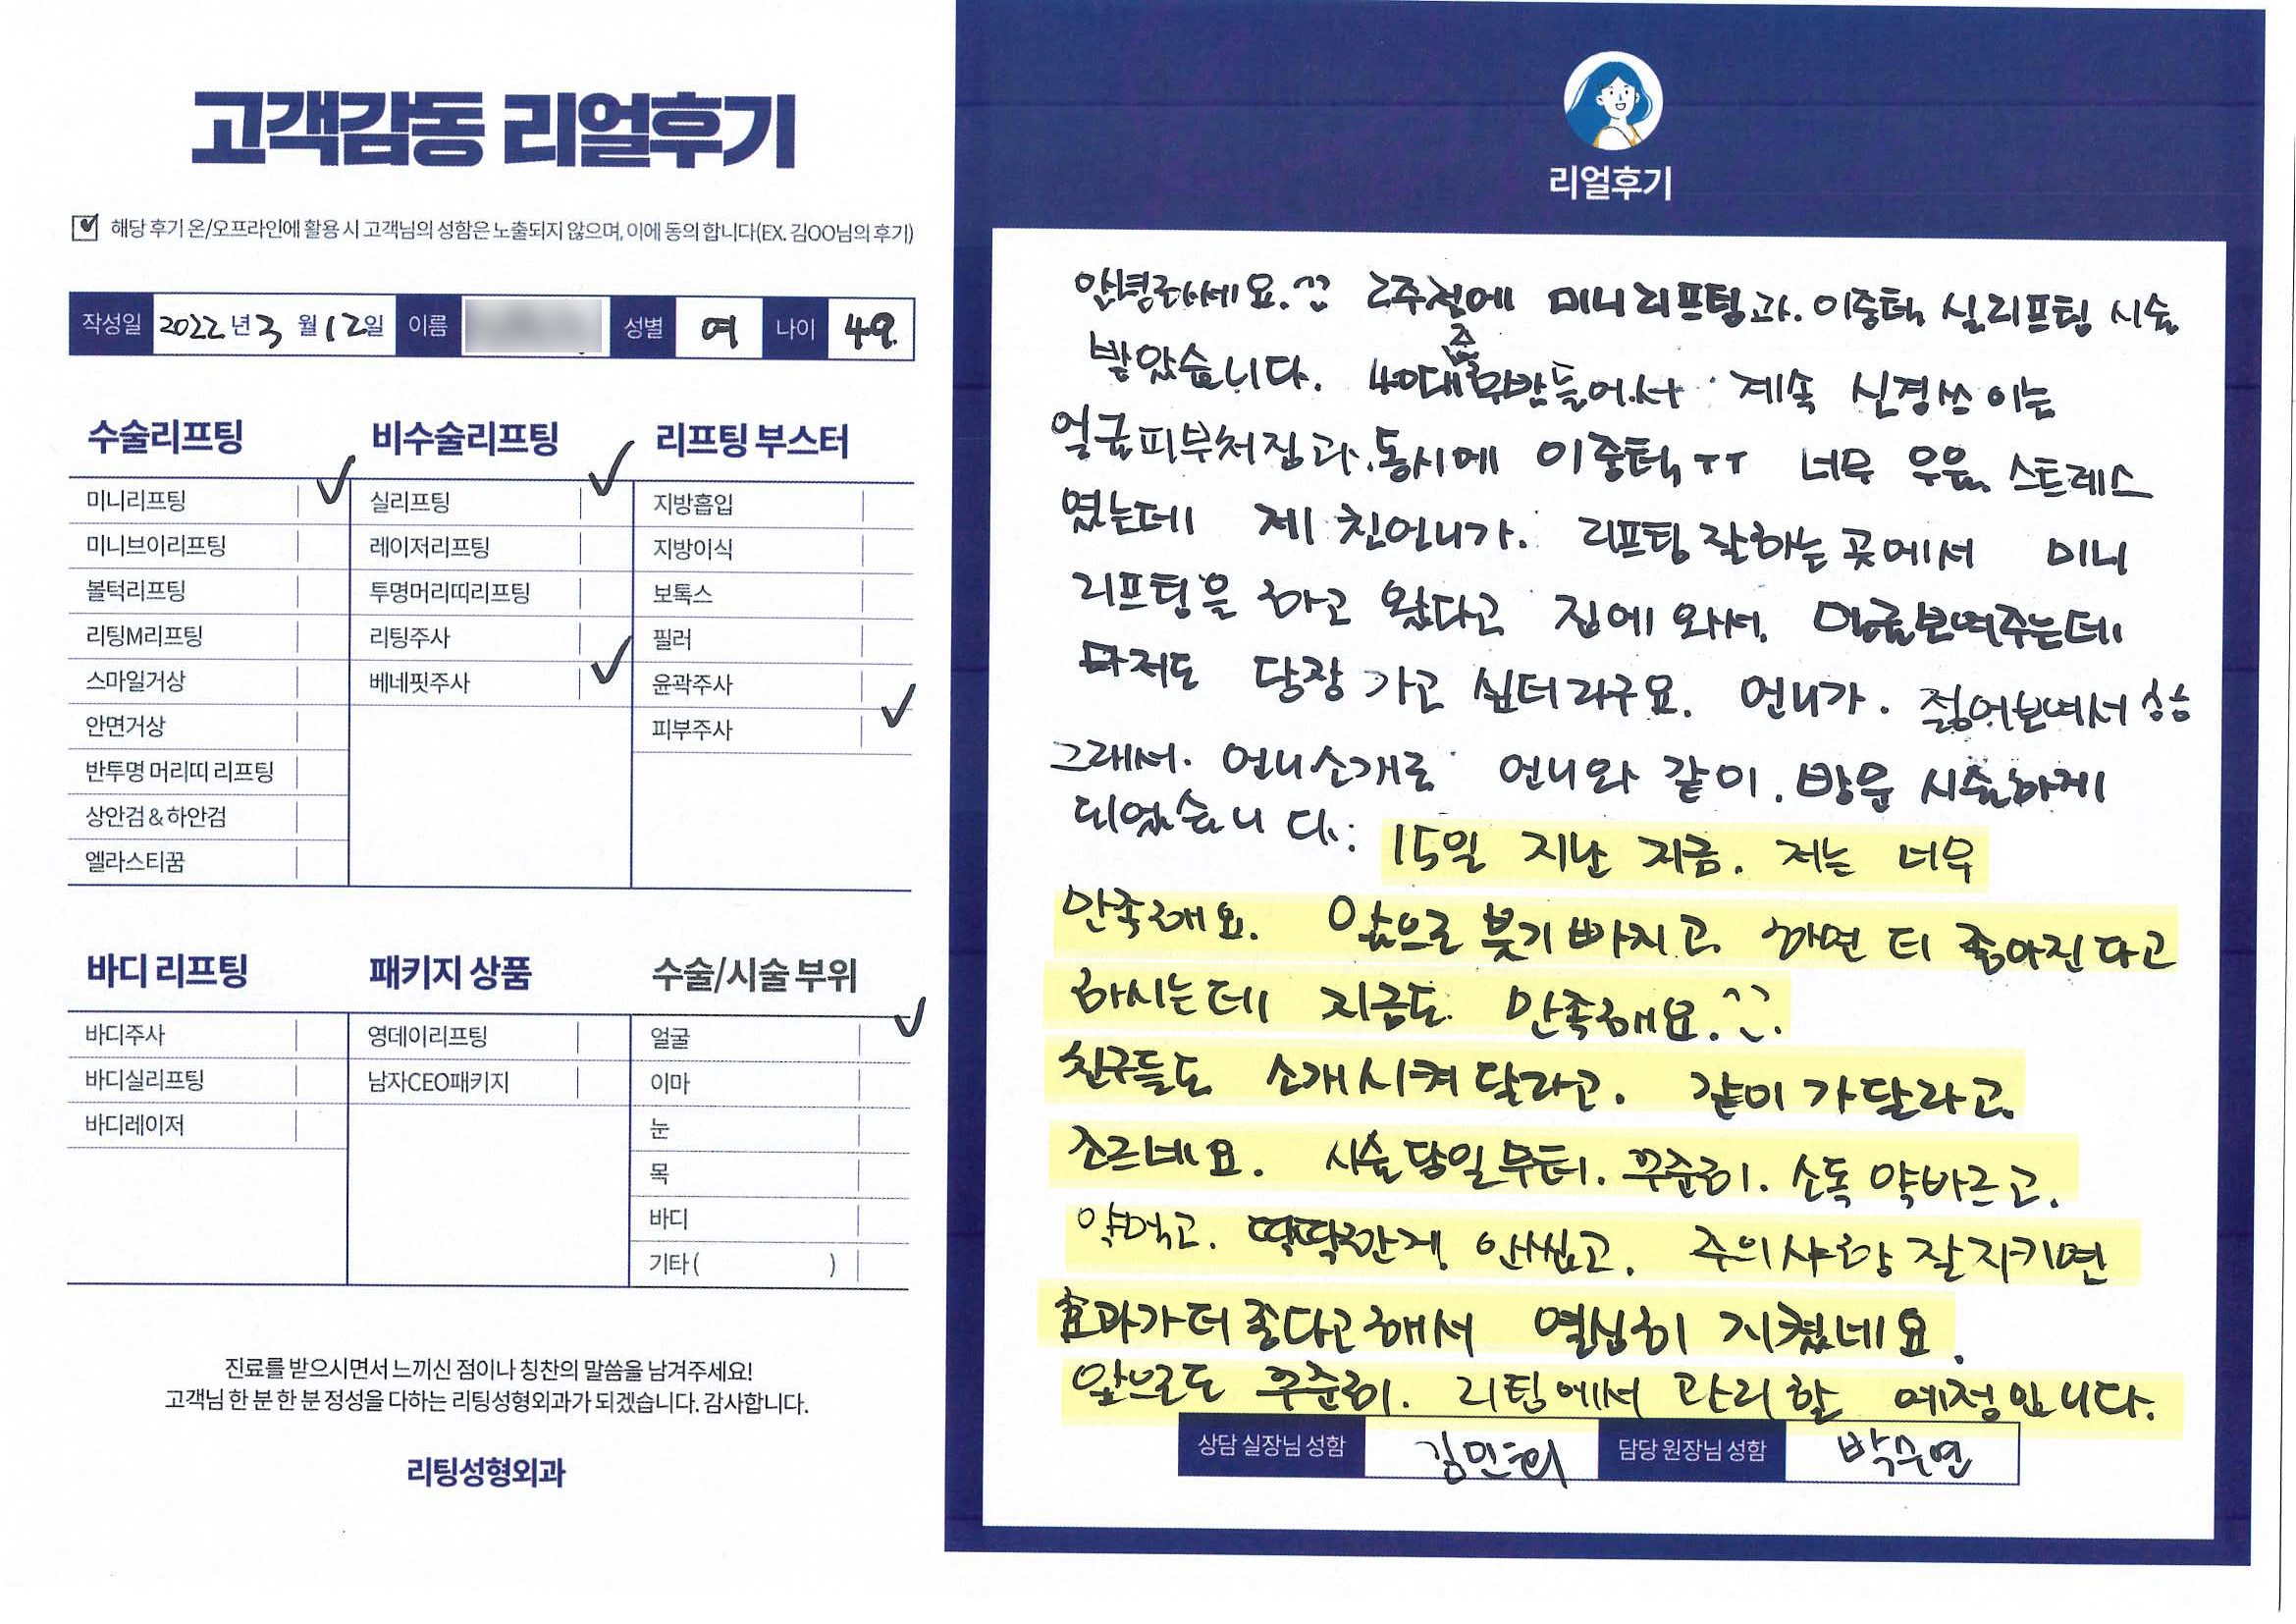 고객감동 리얼후기
해당 후기 온/오프라인에 활용 시 고객님의 성함은 노출되지 않으며, 이에 동의 합니다(EX. 김OO님의 후기)
작성일 2022년 3월 12일 이름 성별 여 나이 49.
수술리프팅
미니리프팅
미니브이리프팅
볼턱리프팅
리팅M리프팅
스마일거상
안면거상
반투명 머리띠 리프팅
상안검&하안검
엘라스티꿈
비수술리프팅
실리프팅
레이저리프팅
투명머리띠리프팅
리팅주사
베네핏주사
리프팅 부스터
지방흡입
지방이식
보톡스
필러
윤곽주사
피부주사
바디 리프팅
바디주사
바디실리프팅
바디레이저
패키지 상품
영데이리프팅
남자CEO패키지
수술/시술 부위
얼굴
이마
눈
목
바디
기타 ( )
진료를 받으시면서 느끼신 점이나 칭찬의 말씀을 남겨주세요!
고객님 한 분 한 분 정성을 다하는 리팅성형외과가 되겠습니다. 감사합니다.
리팅성형외과
리얼후기
안녕하세요.^^ 2주전에 미니리프팅과. 이중턱 실리프팅 시술
받았습니다. 40대 들어서 계속 신경쓰이는
얼굴피부처짐과.동시에 이중턱 ㅜㅜ 너무 우울 스트레스
였는데 제 친언니가. 리프팅 잘하는 곳에서 미니
리프팅을 하고 왔다고 집에 와서. 얼굴보여주는데
저도 당장 가고 싶더라구요. 언니가. 젊어보여서
그래서. 언니소개로 언니와 같이. 방문 시술하게
되었습니다. 15일 지난 지금. 저는 너무
만족해요. 앞으로 붓기 빠지고. 하면 더 좋아진다고
하시는데 지금도 만족해요.^^.
친구들도 소개시켜 달라고. 같이 가달라고.
조르네요. 시술당일부터. 꾸준히. 소독 약바르고.
약먹고. 딱딱한게 안씹고. 주의사항 잘지키면
효과가 더 좋다고해서 열심히 지켰네요.
앞으로도 꾸준히. 리팅에서 관리할 예정입니다.
상담 실장님 성함 김민희 담당 원장님 성함 박수연